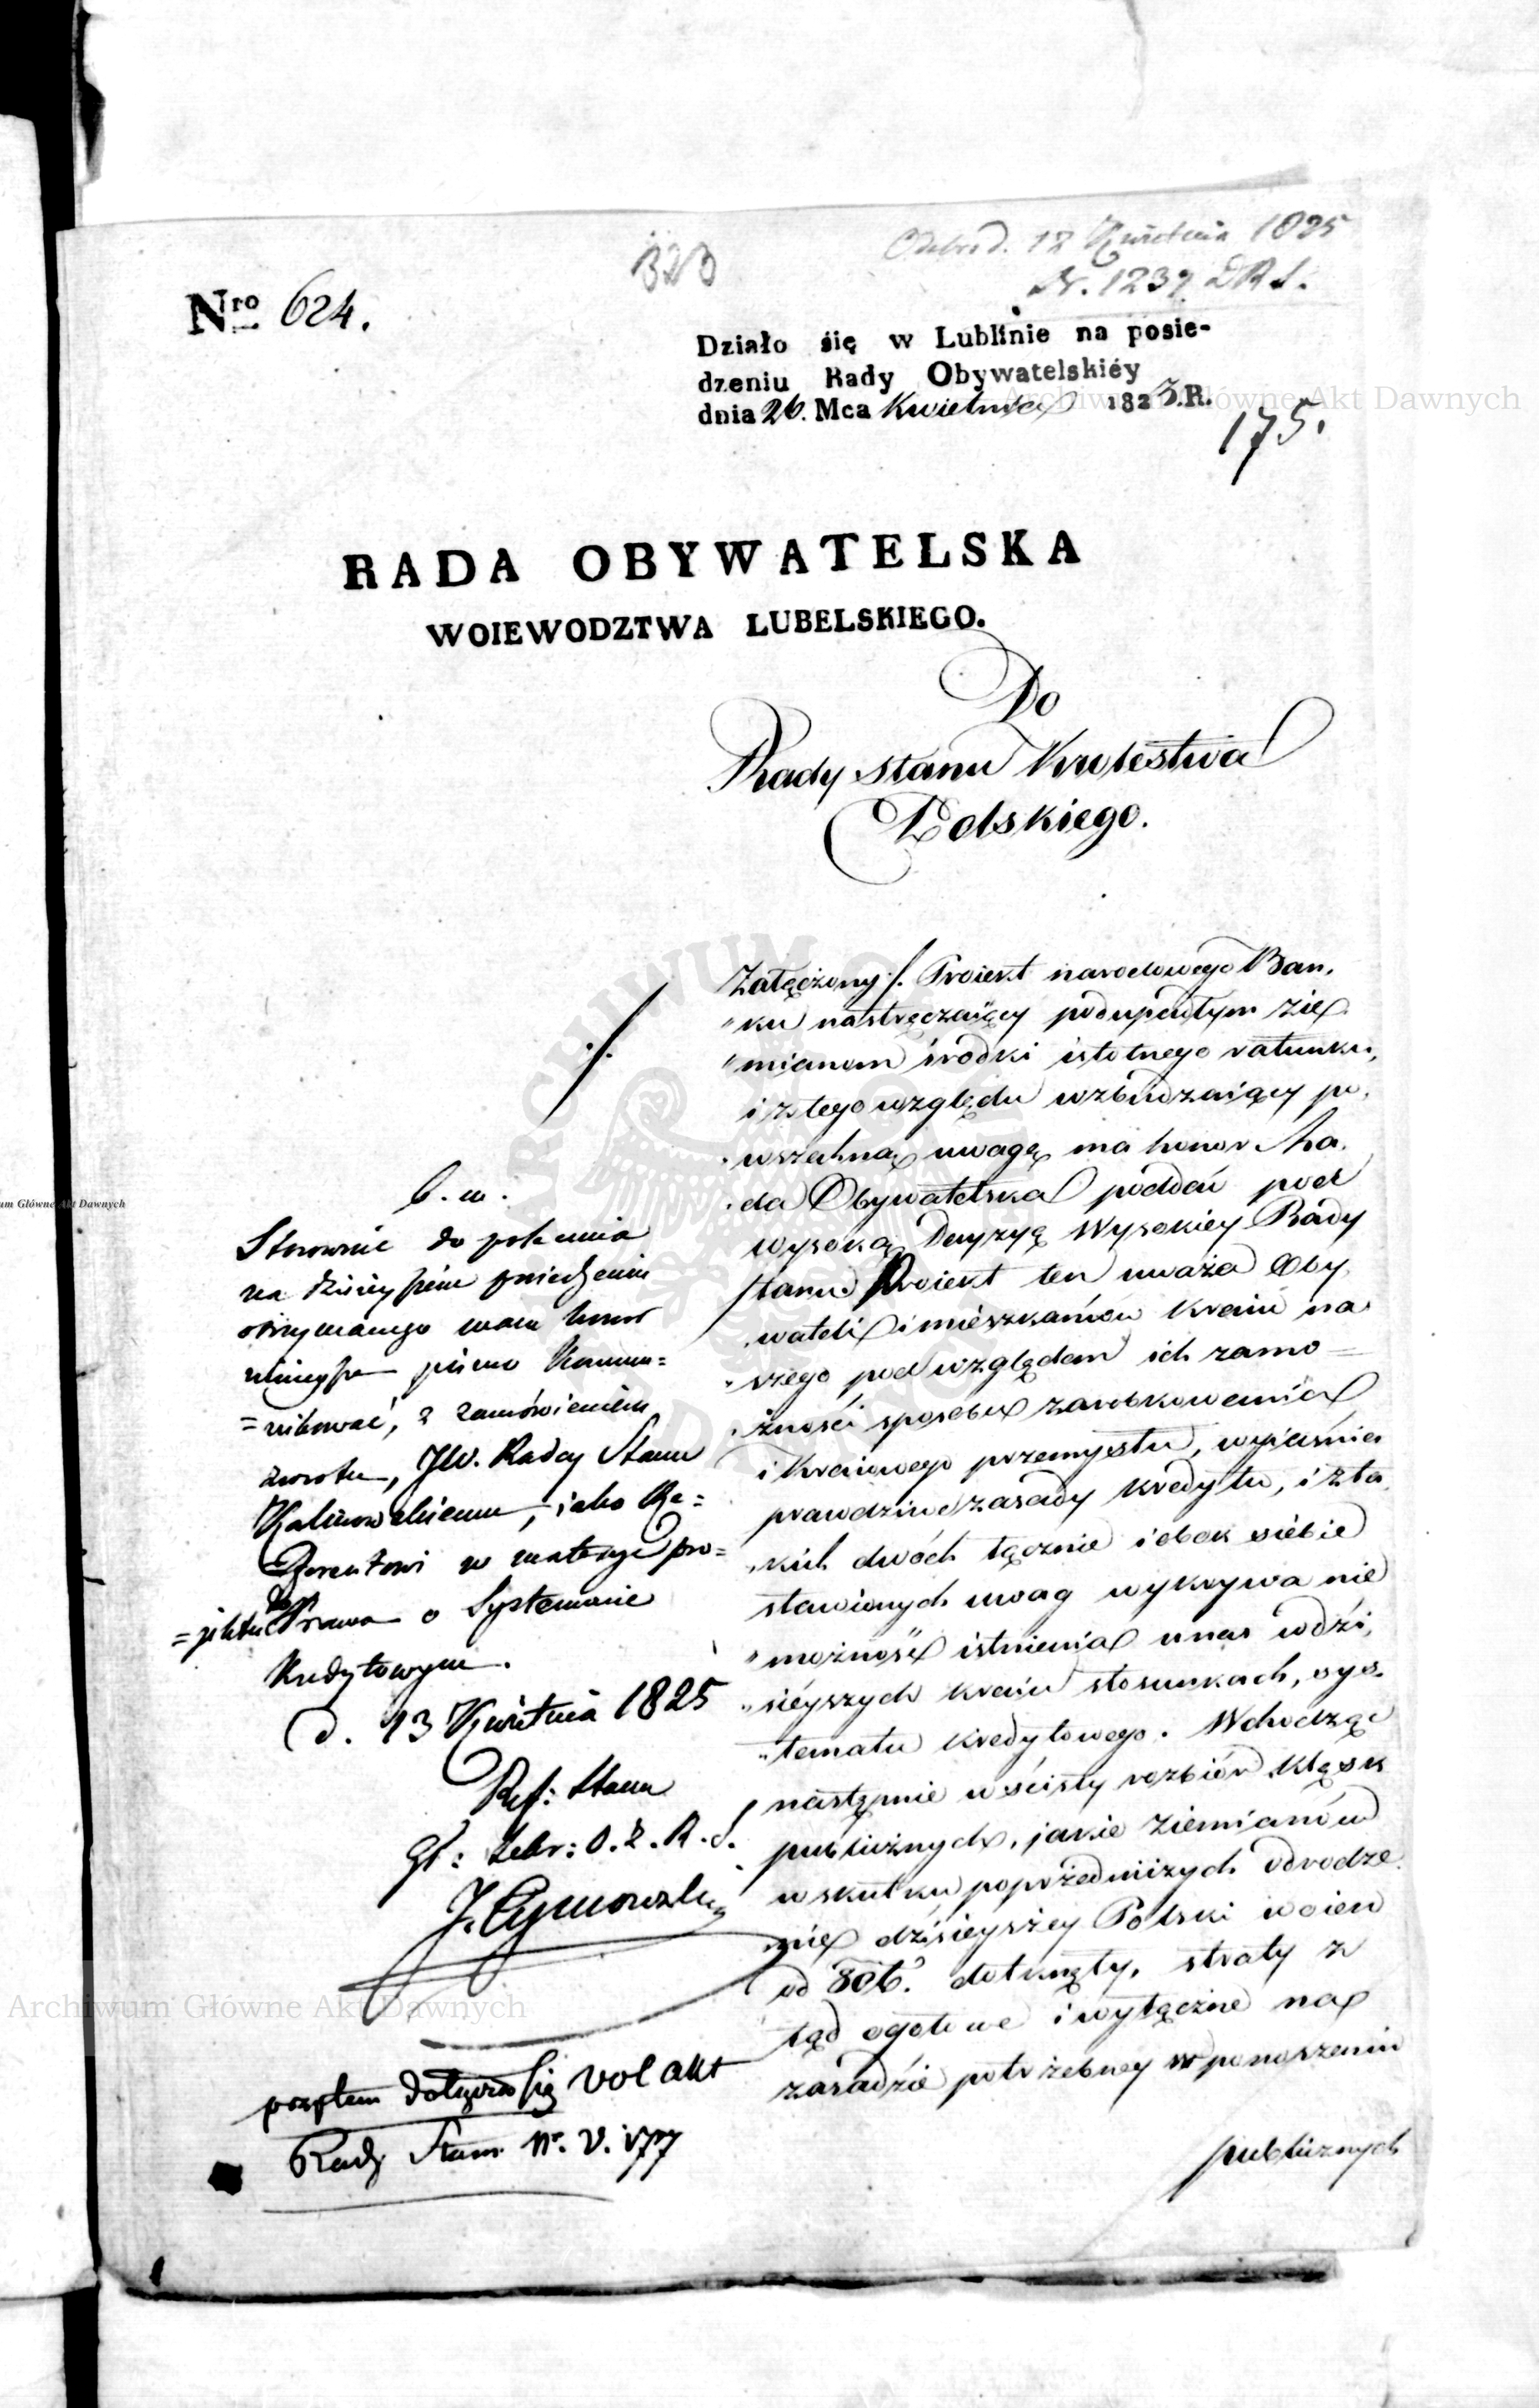 Odebrad. 12 Kwietnia 1825
Nr. 1237 DRS.
323
Nro 624.
Działo się w Lublinie na posie-
dzeniu Rady Obywatelskiéy
dnia 26. Mca Kwietnia 1825.R.
175.
RADA OBYWATELSKA
WOIEWODZTWA LUBELSKIEGO.
Do
Rady Stanu Krolestwa
Polskiego.
Załączony ./. Proiekt narodowego Ban,
"ku nastręczaiący podupadłym zie
"mianom środki istotnego ratunku,
i z tego względu wzbudzaiący po,
wszechną uwagę ma honor Ra,
da Obywatelska poddać pod
wysoką Decyzyą Wysokiey Rady
Stanu Proiekt ten uważa Oby,
wateli i mieszkańcow Kraiu na,
"szego pod względem ich zamo=
żności sposobu zarobkowania
i Kraiowego przemysłu, wyiaśnia
prawdziwe zasady kredytu, i z ta,
kich dwóch łącznie i obok siebie
stawionych uwag wykrywa nie
"możność istnienia u nas w dzi,
"sieyszych kraiu stosunkach, sys,
"tematu kredytowego. Wchodząc
następnie w ścisły rozbiór klęsk
publicznych, jakie Ziemianów
w skutku poprzedniczych odrodze
nie dzisieyszey Polski woien
od 806. dotknęły, straty z
tąd ogołowe i wyłącznie na
zasadzie potrzebney w ponoszeniu
publicznych
./.
b. w.
Stosownie do polecenia
na dzisieyszém posiedzeniu
otrzymanego mam honor
ninieysze pismo Kommu=
=nikować, z zamówieniem
zwrotu, JW. Radcy Stanu
Kalinowskiemu, iako Re=
ferentowi w materyi pro=
=jektu do Prawa o Systemacie
Kredytowym.
d. 13 Kwietnia 1825
Ref: Stanu
J. Tymowski
poczem dołącza się vol akt
Rady Stanu Nr. V. 177
Archiwum Główne Akt Dawnych
Archiwum Główne Akt Dawnych
um Główne Akt Dawnych
ARCHIWUM